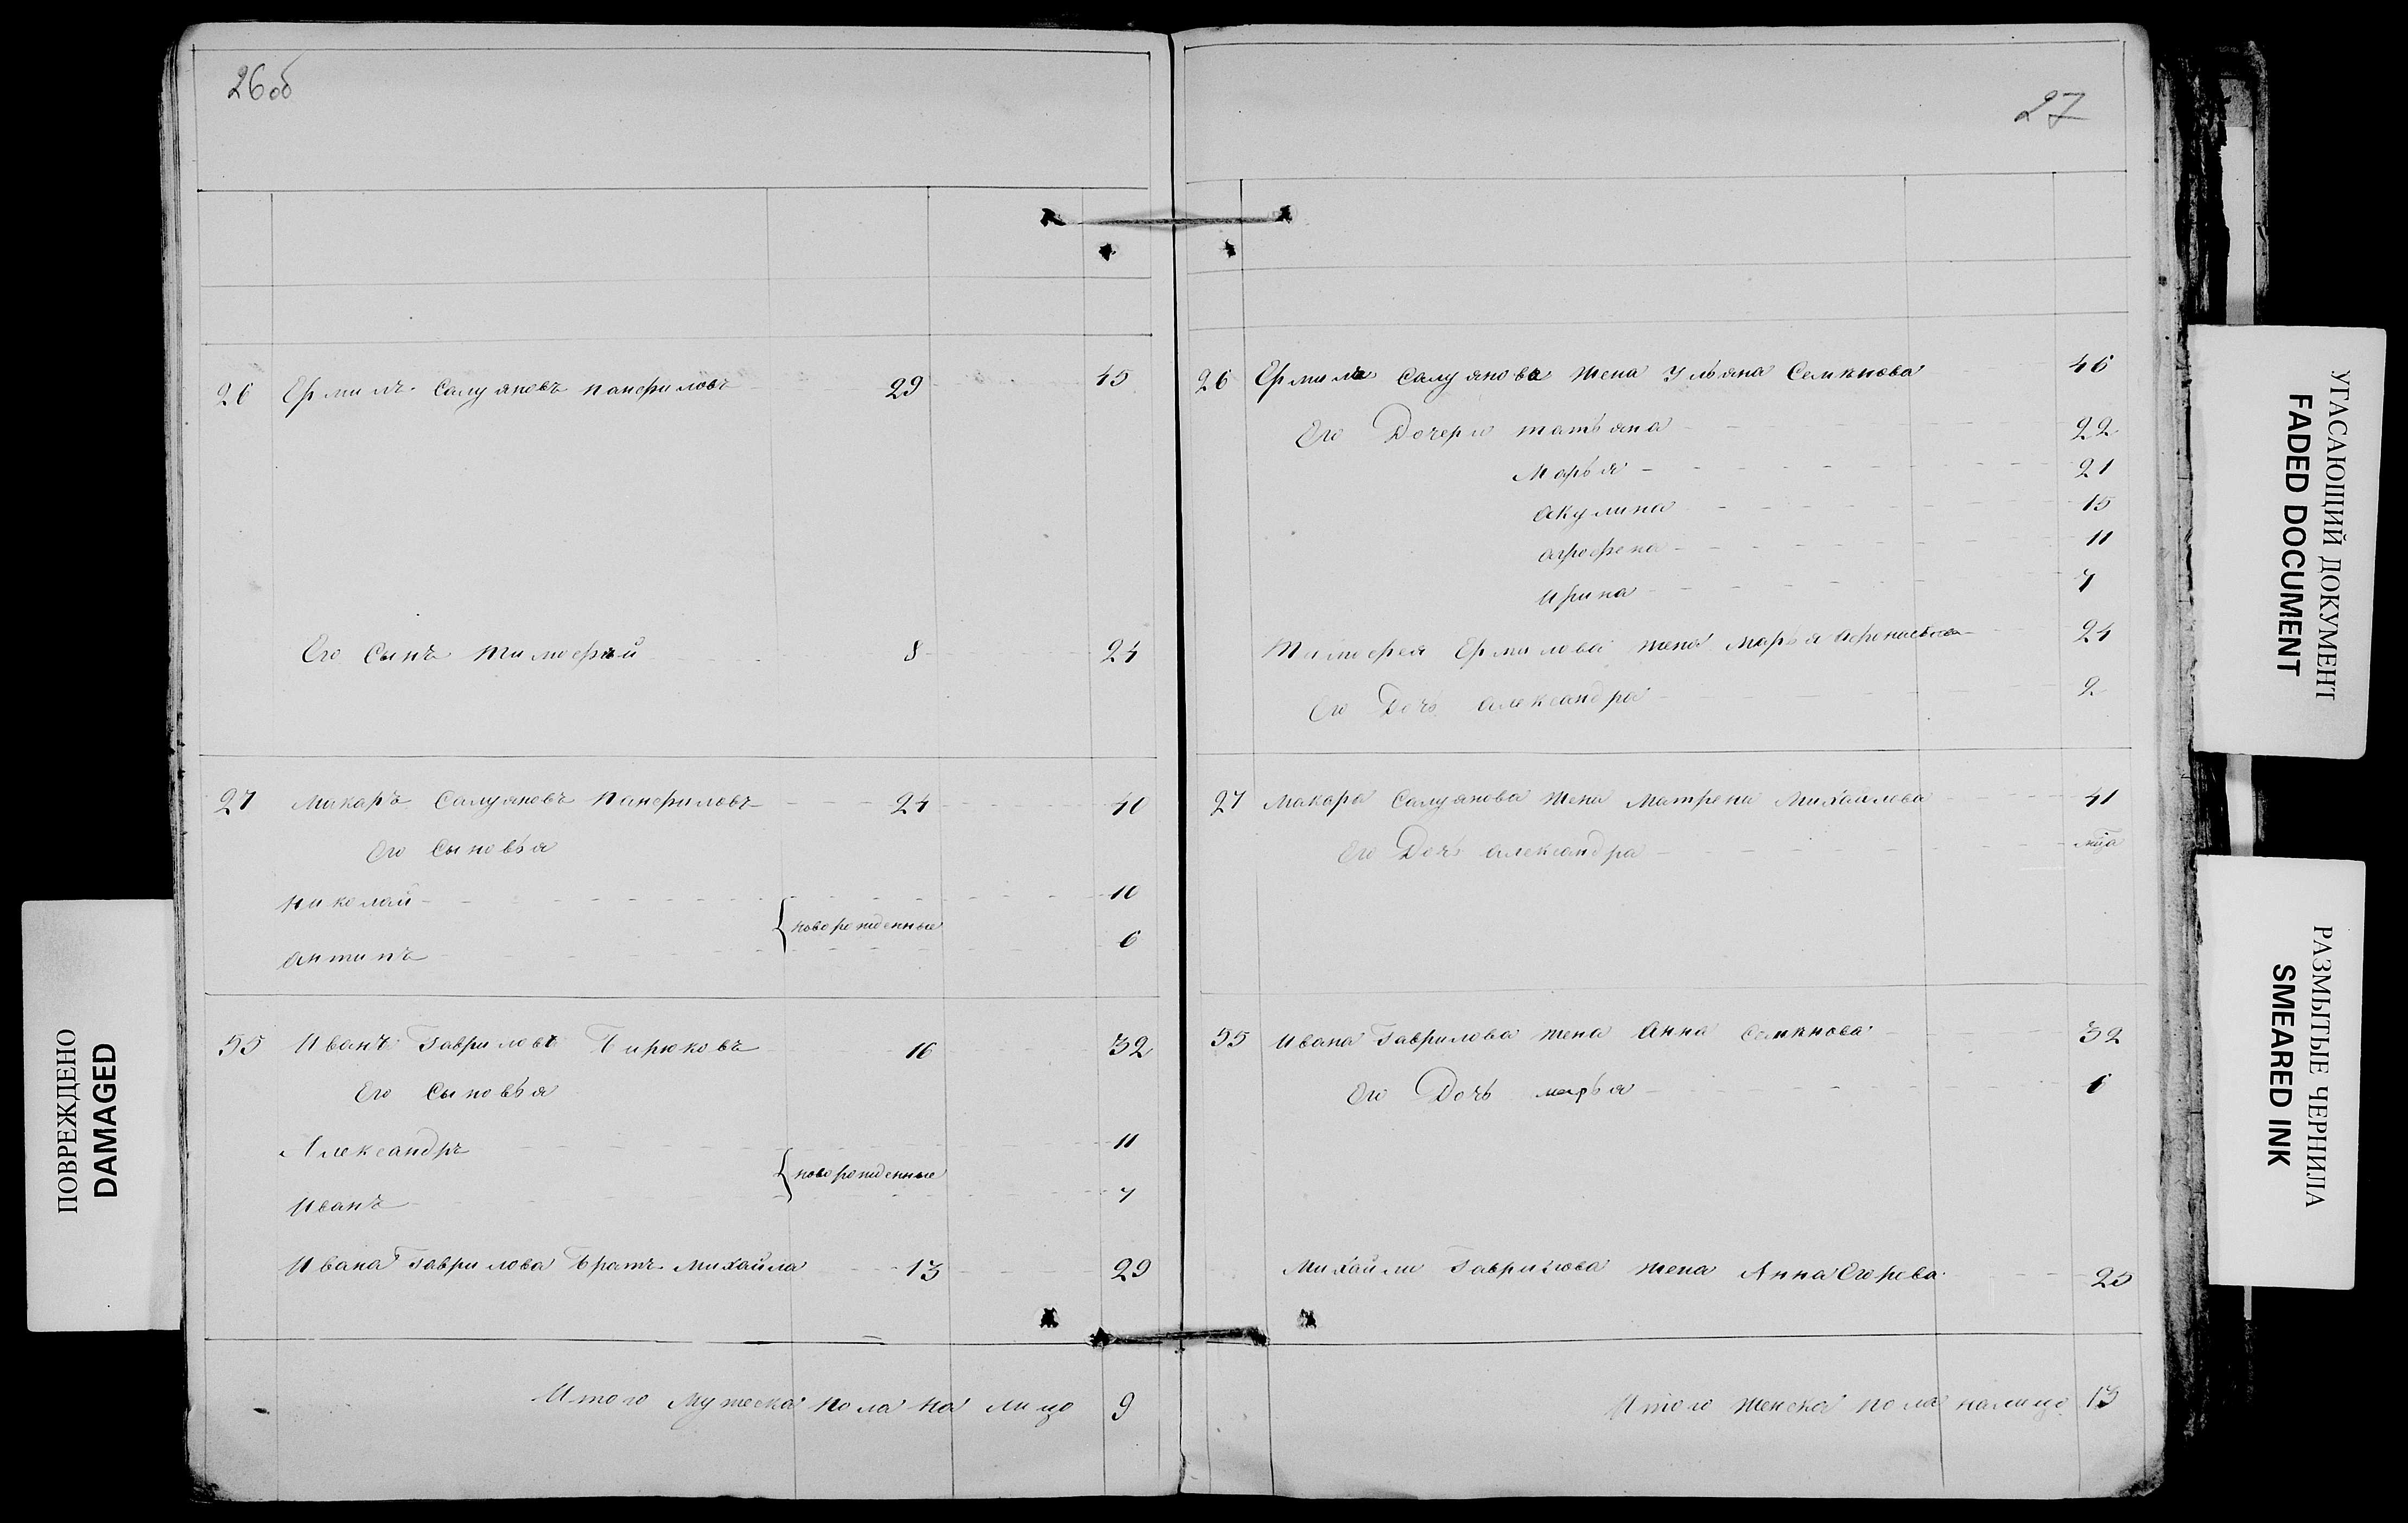 26об
26 Ермилъ Салуяновъ Панфиловъ 29 45
Его Сынъ Тимофѣй 8 24
27 Макаръ Салуяновъ Панфиловъ 24 40
Его Сыновья
Николай 10
новорожденные
Антипъ 6
55 Иванъ Гавриловъ Бирюковъ 16 32
Его Сыновья
Александръ 11
новорожденные
Иванъ 7
Ивана Гаврилова Братъ Михайла 13 29
Итого Мужеска пола на лицо 9
27
26 Ермила Салуянова жена Ульяна Семѣнова 46
Его Дочери татьяна 22
Марья 21
Акулина 15
Аграфена 11
Ирина 7
Тимофея Ермилова жена Марья Афонасьева 24
Его Дочь Александра 2
27 Макара Салуянова жена Матрена Михайлова 41
Его Дочь Александра
55 Ивана Гаврилова жена Анна Семѣнова 32
Его Дочь марья
Михайлы Гаврилова жена Анна Егорова 25
Итого женска пола налицо 13
ПОВРЕЖДЕНО
DAMAGED
УГАСАЮЩИЙ ДОКУМЕНТ
FADED DOCUMENT
РАЗМЫТЫЕ ЧЕРНИЛА
SMEARED INK